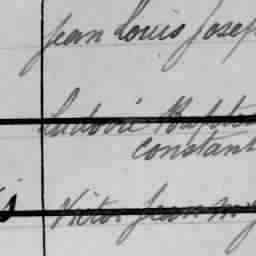 Jean Louis Josep
Ludovic Baptis
constant
Victor Jean M